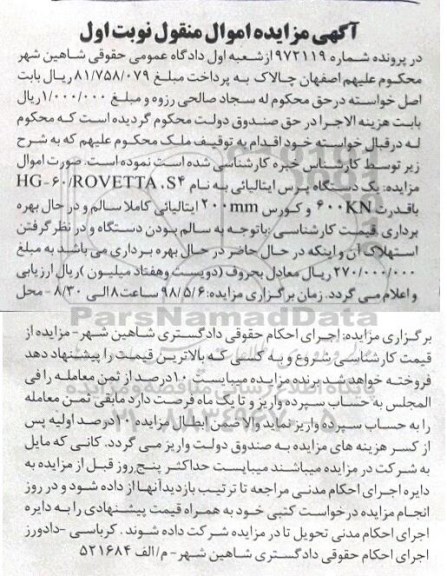 آگهی مزایده اموال منقول نوبت اول
در پرونده شماره ۹۷۲۱۱۹ از شعبه اول دادگاه عمومی حقوقی شاهین شهر
محکوم علیهم اصفهان چالاک به پرداخت مبلغ ۸۱/۷۵۸/۰۷۹ ریال بابت
اصل خواسته در حق محکوم له سجاد صالحی رزوه و مبلغ ۱/۰۰۰/۰۰۰ ریال
بابت هزینه الاجرا در حق صندوق دولت محکوم گردیده است که محکوم
له در قبال خواسته خود اقدام به توقیف ملک محکوم علیهم که به شرح
زیر توسط کارشناس خبره کارشناسی شده است نموده است. صورت اموال
مزایده: یک دستگاه پرس ایتالیائی به نام HG-۶۰/ROVETTA .S۴
باقدرت ۶۰۰KN و کورس ۲۰۰mm ایتالیائی کاملا سالم و در حال بهره
برداری. قیمت کارشناسی :باتوجه به سالم بودن دستگاه و در نظر گرفتن
استهلاک آن و اینکه در حال حاضر در حال بهره برداری می باشد به مبلغ
۲۷۰/۰۰۰/۰۰۰ ریال معادل بحروف (دویست و هفتاد میلیون )ریال ارزیابی
و اعلام می گردد. زمان برگزاری مزایده: ۹۸/۵/۶ ساعت ۸ الی ۸/۳۰ - محل
ParsNamadData
برگزاری مزایده: اجرای احکام حقوقی دادگستری شاهین شهر- مزایده از
قیمت کارشناسی شروع و به کسی که بالاترین قیمت را پیشنهاد دهد
فروخته خواهد شد برنده مزایده میبایست ۱۰درصد از ثمن معامله را فی
المجلس به حساب سپرده واریز و تا یک ماه فرصت دارد مابقی ثمن معامله
را به حساب سپرده واریز نماید والا ضمن ابطال مزایده ۱۰درصد اولیه پس
از کسر هزینه های مزایده به صندوق دولت واریز می گردد. کانی که مایل
به شرکت در مزایده میباشند میبایست حداکثر پنج روز قبل از مزایده به
دایره اجرای احکام مدنی مراجعه تا ترتیب بازدید آنها از داده شود و در روز
انجام مزایده درخواست کتبی خود به همراه قیمت پیشنهادی را به دایره
اجرای احکام مدنی تحویل تا در مزایده شرکت داده شوند. کرباسی -دادورز
اجرای احکام حقوقی دادگستری شاهین شهر- م/الف ۵۲۱۶۸۴